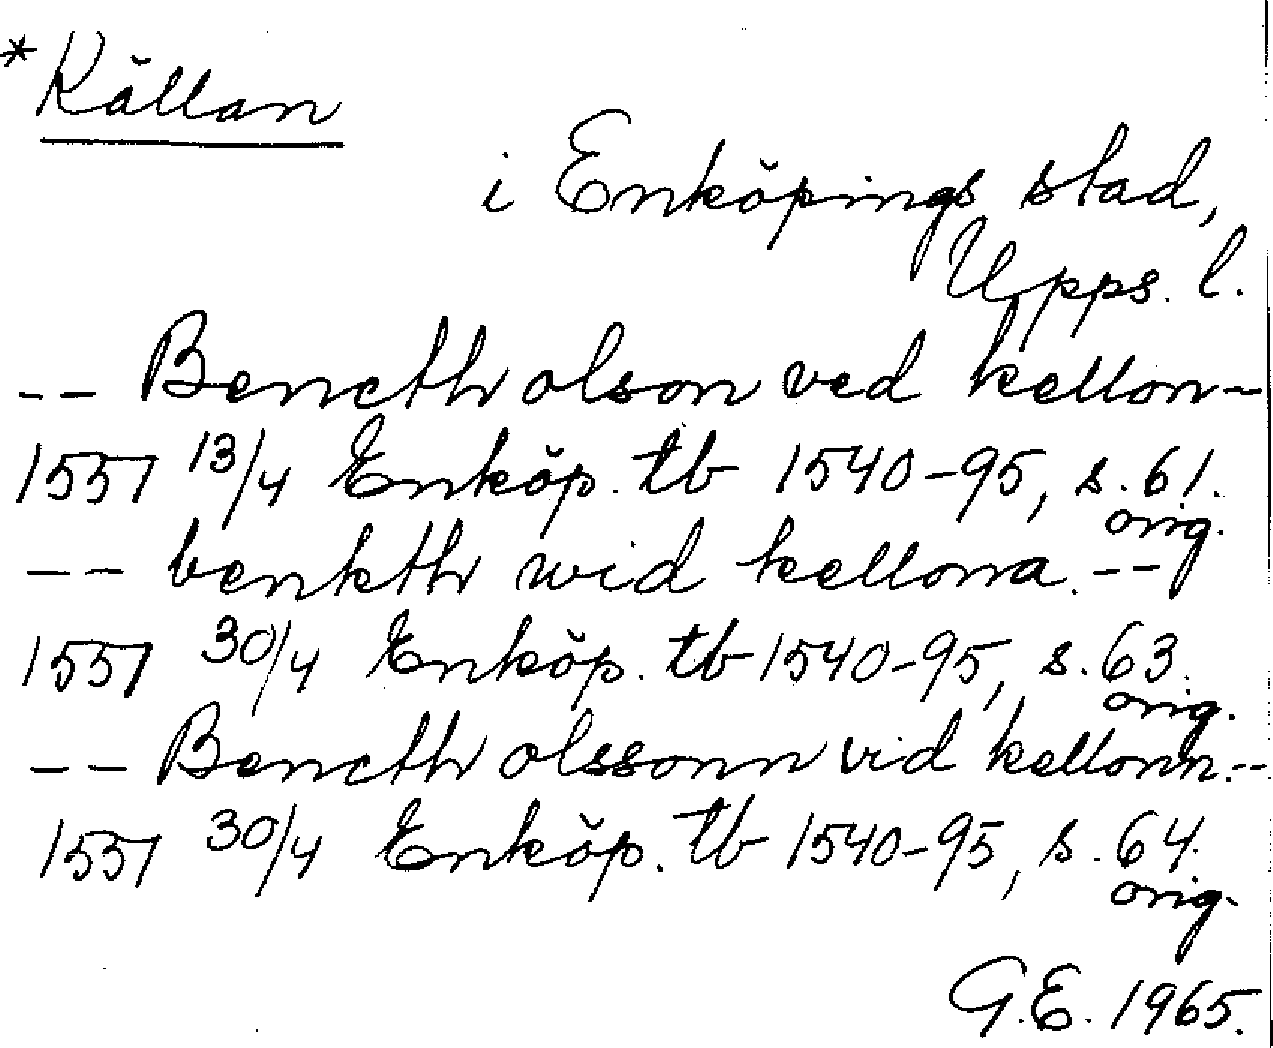 *Källan
i Enköpings stad,
Upps. l.
-- Bencth olson ved kellon--
1557 13/4 Enköp. tb 1540-95, s. 61.
orig.
-- benkth wid kellona. --
1557 30/4 Enköp. tb 1540-95, s. 63.
orig.
-- Bencth olssonn vid kellonn.--
1557 30/4 Enköp. tb 1540-95, s. 64.
orig.
G.E. 1965.